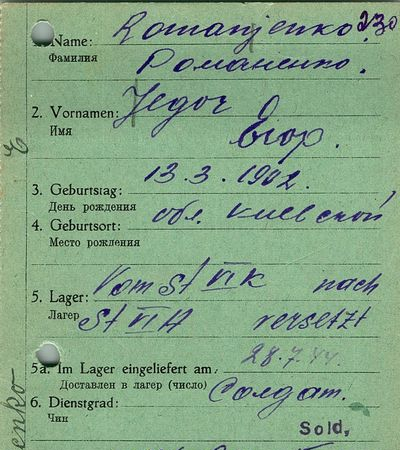 1. Name: Romanjenko. 230
Фамилия Романенко.
2. Vornamen: Jegor
Имя Егор.
3. Geburtstag: 13.3.1902.
День рождения
4. Geburtsort: обл. Киевской
Место рождения
5. Lager: Vom St VI K nach
Лагер St VI A versetzt
5a. Im Lager eingeliefert am: 28.7.44.
Доставлен в лагер (число)
6. Dienstgrad: Солдат.
Чин
Sold,
enko